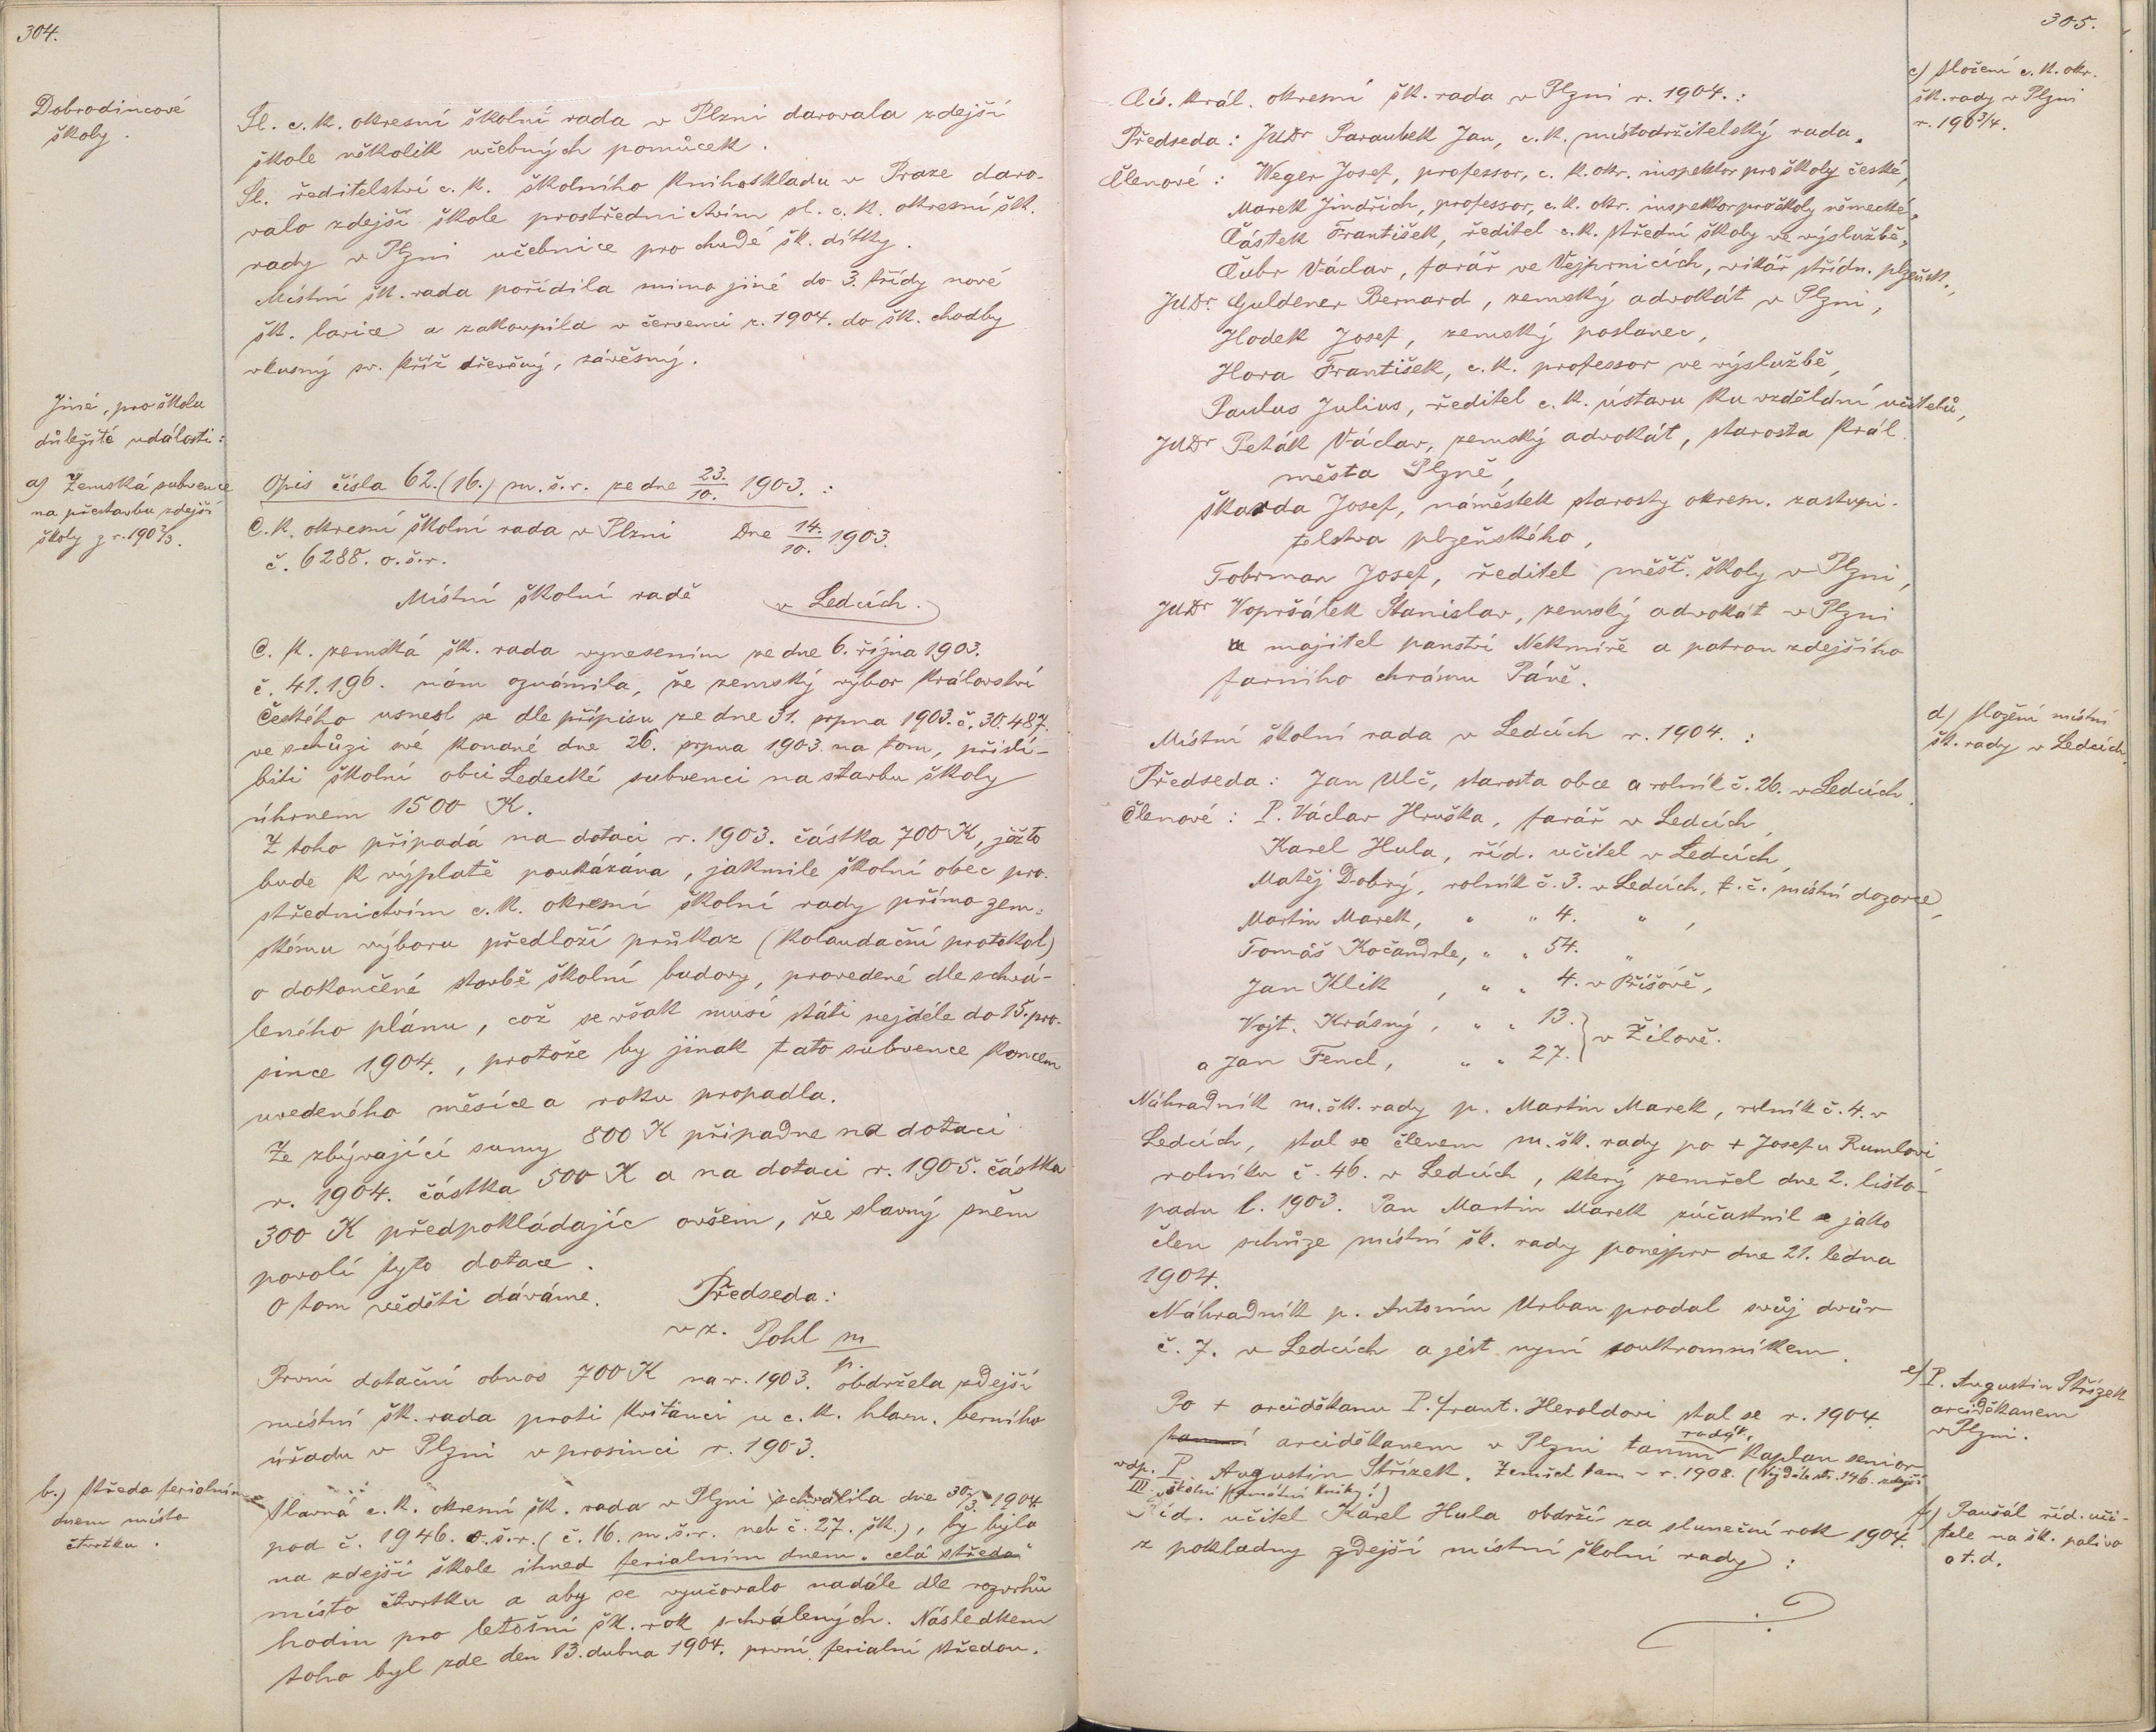 304.
Dobrodincové
školy.
Sl. c. k. okresní školní rada v Plzni darovala zdejší
škole několik učebných pomůcek.
Sl. ředitelství c. k. školního knihoskladu v Praze daro-
valo zdejší škole prostřednictvím sl. c. k. okresní šk.
rady v Plzni učebnice pro chudé šk. dítky.
Místní šk. rada pořídila mimo jiné do 3. třídy nové
šk. lavice a zakoupila v červenci r. 1904. do šk. chodby
vkusný sv. kříž dřevěný, závěsný.
Jiné, pro školu
důležité události:
a) Zemská subvence
na přestavbu zdejší
školy z r. 1902/3.
Opis čísla 62. (16.) m. š. r. ze dne 23./10. 1903. :
C. k. okresní školní rada v Plzni Dne 14./10. 1903.
č. 6288. o. š. r.
Místní školní radě v Ledcích.
C. k. zemská šk. rada vynesením ze dne 6. října 1903.
č. 41.196. nám oznámila, že zemský výbor království
Českého usnesl se dle přípisu ze dne 31. srpna 1903. č. 30.487.
ve schůzi své konané dne 26. srpna 1903. na tom, přislí-
biti školní obci Ledecké subvenci na stavbu školy
úhrnem 1500 K.
Z toho připadá na dotaci r. 1903. částka 700 K, ježto
bude k výplatě poukázána, jakmile školní obec pro-
střednictvím c. k. okresní školní rady přímo zem-
skému výboru předloží průkaz (kolaudační protokol)
o dokončené stavbě školní budovy, provedené dle schvá-
leného plánu, což se však musí státi nejdéle do 15. pro-
since 1904., protože by jinak tato subvence koncem
uvedeného měsíce a roku propadla.
Ze zbývající sumy 800 K připadne na dotaci
r. 1904. částka 500 K a na dotaci r. 1905. částka
300 K předpokládajíc ovšem, že slavný sněm
povolí tyto dotace.
O tom věděti dáváme. Předseda:
v z. Pohl m/p.
První dotační obnos 700 K na r. 1903. obdržela zdejší
místní šk. rada proti kvitanci u c. k. hlavn. berního
úřadu v Plzni v prosinci r. 1903.
b.) Středa ferialním
dnem místo
čtvrtku.
Slavná c. k. okresní šk. rada v Plzni schválila dne 30./3. 1904.
pod č. 1946. o. š. r. (č. 16. m. š. r. neb č. 27. šk.), by byla
na zdejší škole ihned ferialním dnem „celá středa"
místo čtvrtku a aby se vyučovalo nadále dle rozvrhů
hodin pro letošní šk. rok schválených. Následkem
toho byl zde den 13. dubna 1904. první ferialní středou.
305.
c) Složení c. k. okr.
šk. rady v Plzni
r. 1903/4.
Cís. král. okresní šk. rada v Plzni r. 1904. :
Předseda: JUDr Paraubek Jan, c. k. místodržitelský rada.
Členové: Weger Josef, professor, c. k. okr. inspektor pro školy české,
Marek Jindřich, professor, c. k. okr. inspektor pro školy německé,
Částek František, ředitel c. k. střední školy ve výslužbě,
Čubr Václav, farář ve Vejprnicích, vikář střídn. plzeňsk.,
JUDr. Guldener Bernard, zemský advokát v Plzni,
Hodek Josef, zemský poslanec,
Hora František, c. k. professor ve výslužbě,
Paulus Julius, ředitel c. k. ústavu ku vzdělání učitelů,
JUDr Peták Václav, zemský advokát, starosta král.
města Plzně,
Škarda Josef, náměstek starosty okresn. zastupi-
telstva plzeňského,
Tobrman Josef, ředitel měšť. školy v Plzni,
JUDr Vopršálek Stanislav, zemský advokát v Plzni
a majitel panství Nekmíře a patron zdejšího
farního chrámu Páně.
d) Složení místní
šk. rady v Ledcích.
Místní školní rada v Ledcích r. 1904. :
Předseda: Jan Ulč, starosta obce a rolník č. 26. v Ledcích.
Členové: P. Václav Hruška, farář v Ledcích,
Karel Hula, říd. učitel v Ledcích,
Matěj Dobrý, rolník č. 3. v Ledcích, t. č. místní dozorce,
Martin Marek, " " 4. " ,
Tomáš Kočandrle, " " 54. " ,
Jan Klik , " " 4. v Příšově,
Vojt. Krásný, " " 13. } v Žilově.
a Jan Fencl, " " 27.
Náhradník m. šk. rady p. Martin Marek, rolník č. 4. v
Ledcích, stal se členem m. šk. rady po + Josefu Rumlovi,
rolníku č. 46. v Ledcích, který zemřel dne 2. listo-
padu l. 1903. Pan Martin Marek zúčastnil se jako
člen schůze místní šk. rady ponejprv dne 21. ledna
1904.
Náhradník p. Antonín Urban prodal svůj dvůr
č. 7. v Ledcích a jest nyní soukromníkem.
e) P. Augustin Střízek
arciděkanem
v Plzni.
Po + arciděkanu P. Frant. Heroldovi stal se r. 1904.
arciděkanem v Plzni tamní kaplan senior
P. Augustin Střízek. Zemřel tam v r. 1908. (Viz dále str. 146. zdejší
III. školní pamětní knihy!)
f) Paušál říd. uči-
tele na šk. palivo
a t. d.
Říd. učitel Karel Hula obdrží za sluneční rok 1904.
z pokladny zdejší místní školní rady: